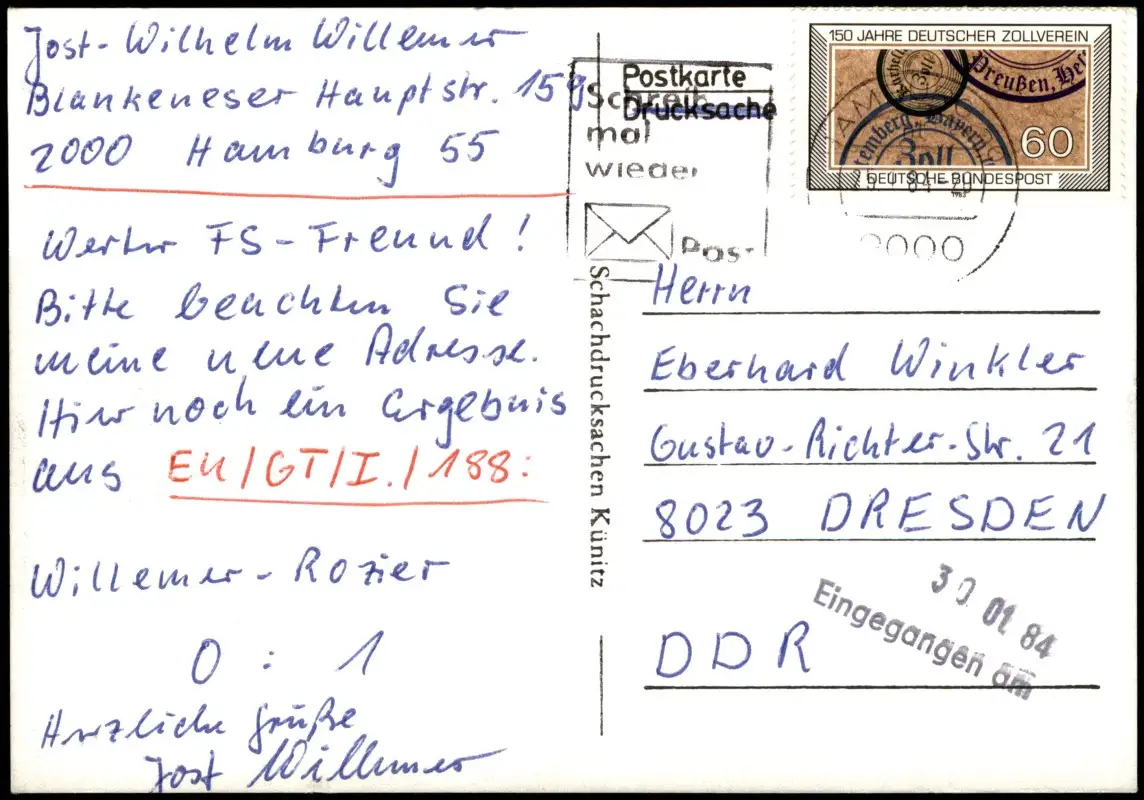 Jost-Wilhelm Willemer
Blankeneser Hauptstr. 159
2000 Hamburg 55
Werter FS-Freund!
Bitte beachten Sie
meine neue Adresse.
Hier noch ein Ergebnis
aus EU/GT/I./188:
Willemer-Rozier
0 : 1
Herzliche Grüße
Jost Willemer
Postkarte
Drucksache
Schreib
mal
wieder
Post
150 JAHRE DEUTSCHER ZOLLVEREIN
Preußen, Hes
temberg, Bayern, u
Zoll
60
DEUTSCHE BUNDESPOST
2000
Schachdrucksachen Künitz
Herrn
Eberhard Winkler
Gustav-Richter-Str. 21
8023 DRESDEN
DDR
30 01 84
Eingegangen am